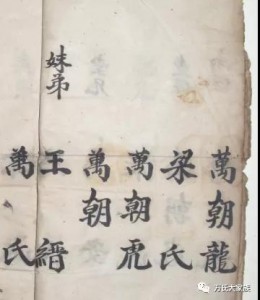 萬朝龍
梁氏
萬朝虎
萬朝
妹弟王縉
萬氏
万氏大家族